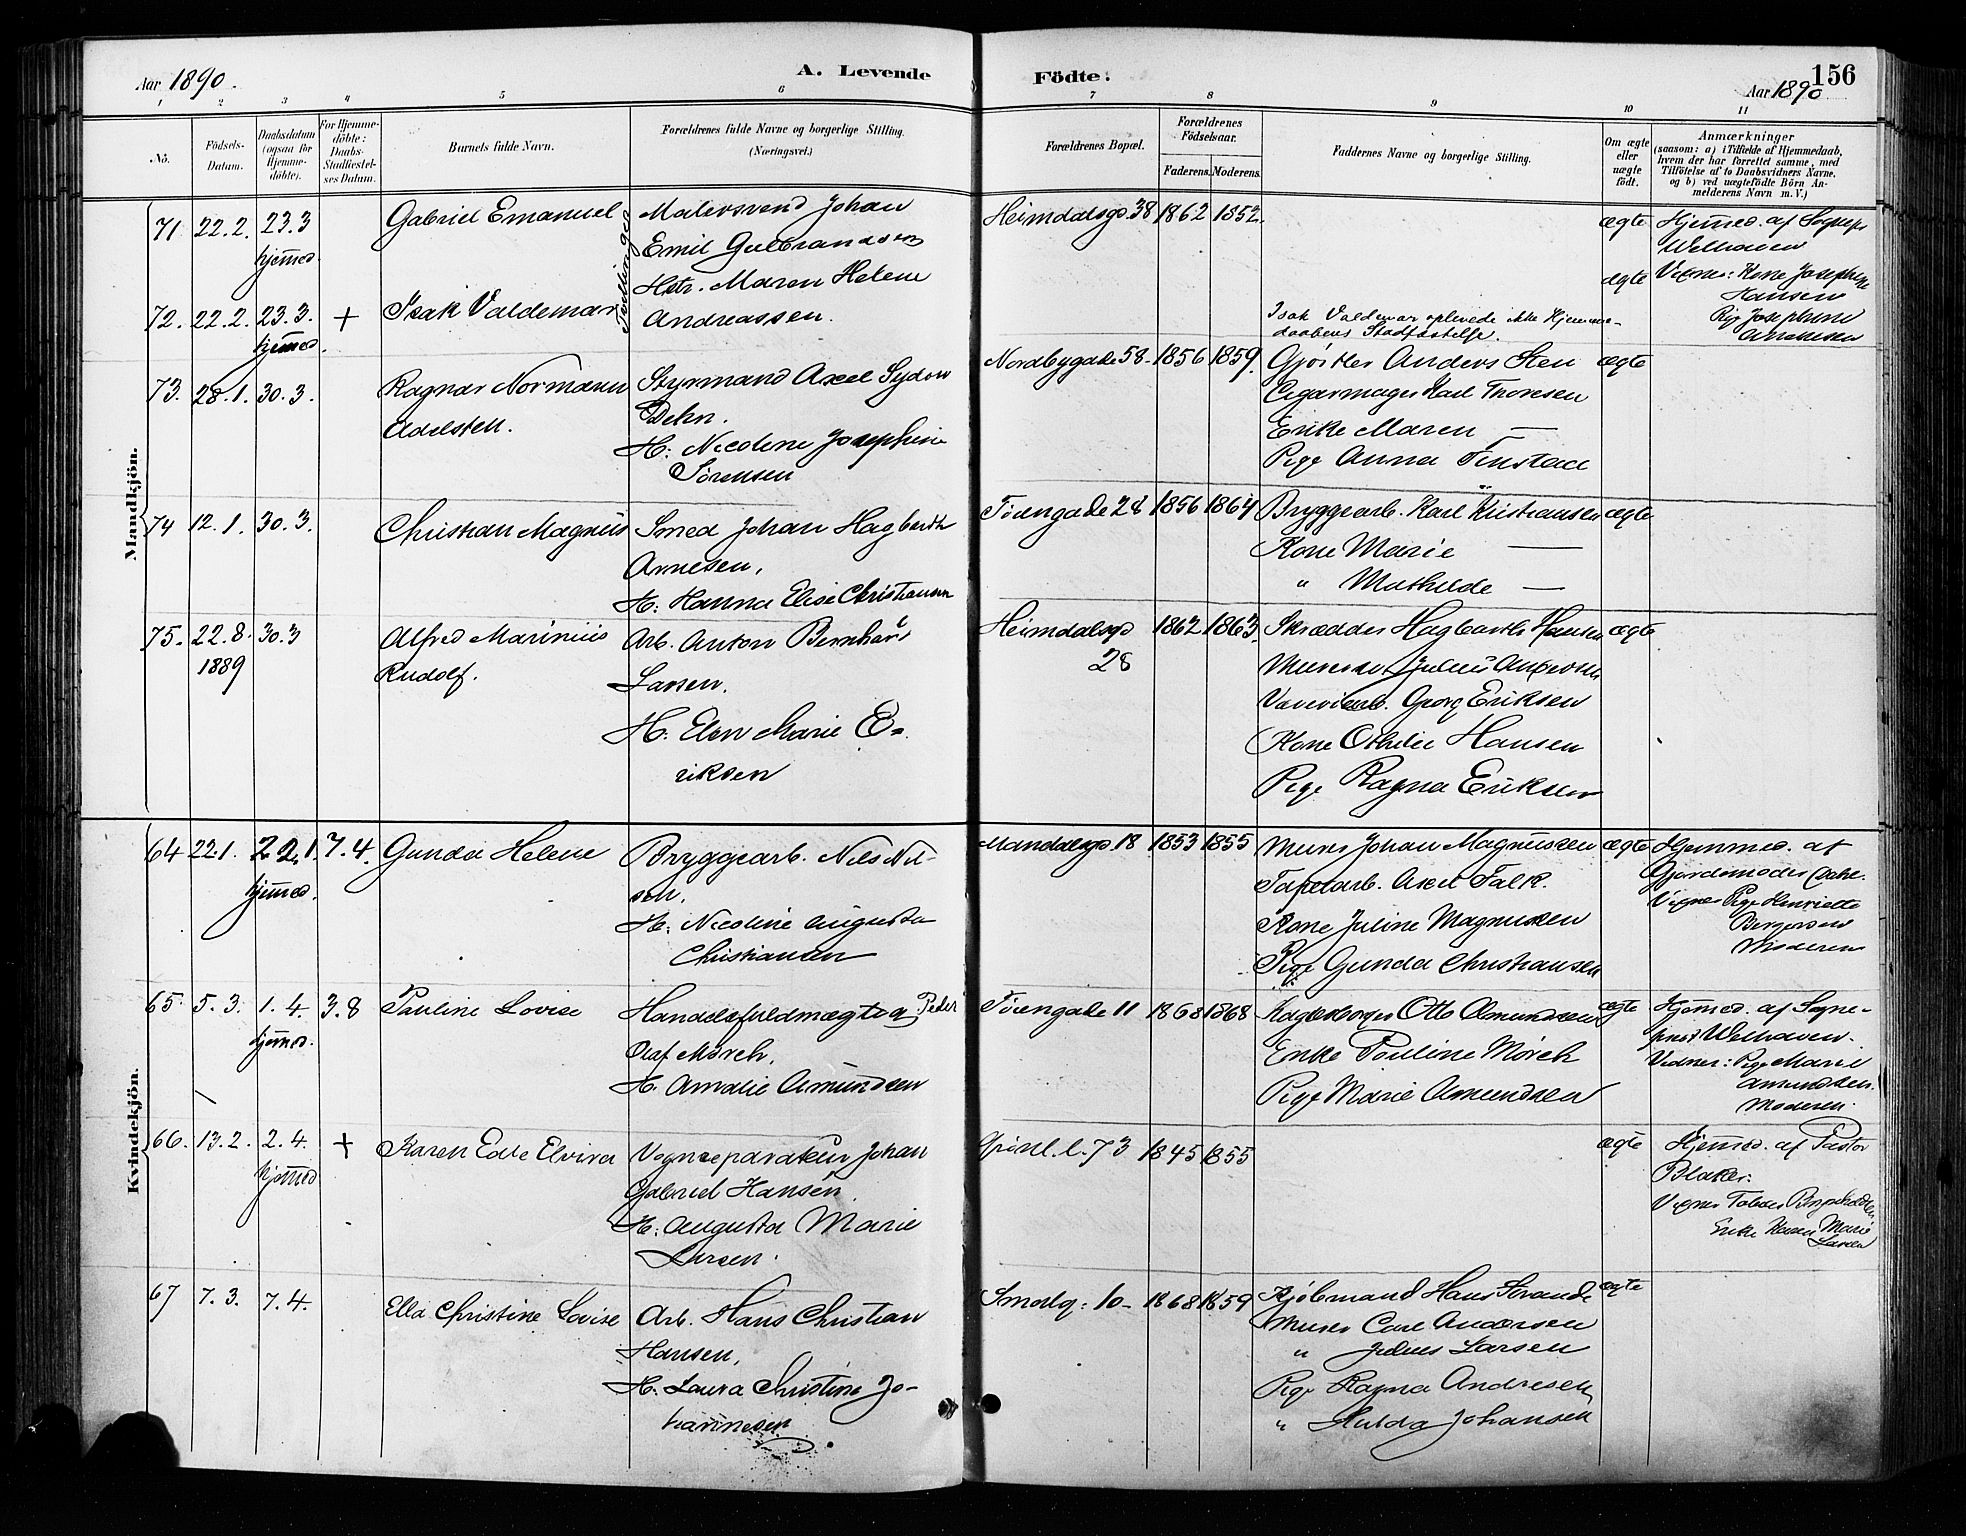 Aar 1890.
A. Levende
Födte.
156
Aar 1890
1 2 3 4 5 6 7 8 9 10 11
No.
Födsels-
Datum.
Daabsdatum
(ogsaa for
Hjemme-
döbte).
For Hjemme-
döbte:
Daabs-
Stadfæstel-
ses Datum.
Barnets fulde Navn.
Forældrenes fulde Navne og borgerlige Stilling.
(Næringsvei.)
Forældrenes Bopæl.
Forældrenes
Födselsaar.
Faderens. Moderens.
Faddernes Navne og borgerlige Stilling.
Om ægte
eller
uægte
födt.
Anmærkninger
(saasom: a) i Tilfælde af Hjemmedaab,
hvem der har forrettet samme, med
Tilföielse af to Daabsvidners Navne,
og b) ved uægtefödte Börn An-
melderens Navn m. V.)
Mandkjön.
71 22.2. 23.3
hjemmed.
Gabriel Emanuel
Tvillinger
Malersvend Johan
Emil Gulbrandsen
Hstr. Maren Helene
Andreassen.
Heimdalsgd. 38 1862 1852.
ægte
Hjemmed. af Sognepr
Welhaven
Vidner: Kone Josephine
Hansen
Pige Josephine
72. 22.2. 23.3. +
hjemmed.
Isak Valdemar
Isak Valdemar oplevede ikke Hjemme-
daabens Stadfæstelse.
ægte
73. 28.1. 30.3.
Ragnar Normann
Adelsten.
Styrmand Axel Sydow
Dehn.
H: Nicoline Josephine
Sörensen
Nordbygade 58 1856 1859.
Gjörtler Anders Sten
Cigarmager Karl Thoresen
Enke Maren —
Pige Anna Finstad
ægte
74 12.1. 30.3.
Christian Magnus
Smed Johan Hagbarth
Arnesen,
H: Hanna Elise Christiansen
Töiengade 28 1856 1864
Bryggearb. Karl Kristiansen
Kone Marie —
" Mathilde —
ægte
75. 22.8. 30.3
1889
Alfred Marinius
Rudolf.
Arb. Anton Bernhard
Larsen.
H. Elen Marie E-
riksen
Heimdalsgd
28
1862 1863.
Skrædder Hagbarth Hansen
Murer Julius
Georg Eriksen
Kone Othilie Hansen
Pige Ragna Eriksen
ægte
Kvindekjön.
64 22.1. 22.1. 7.4.
hjemmed.
Gunda Helene
Bryggearb. Nils Nil-
sen.
H: Nicoline Augusta
Christiansen
Mandalsgd. 18 1853 1855
Murer Johan Magnussen
Tapetarb. Axel Falk.
Kone Juline Magnussen
Pige Gunda Christiansen
ægte
Hjemmed. af
Gjordemoder
Vidner Pige Henriette
Bergersen
Moderen
65. 5.3. 1.4. 3.8
hjemmed.
Pauline Lovise
Handelsfuldmægtig Peder
Olaf Mørch,
H. Amalie Amundsen
Töiengade 11 1868 1868
Otto Amundsen
Enke Pauline Mørch
Pige Marie Amundsen
ægte
Hjemmed. af Sogne-
prest Welhaven.
Vidner: Pige Marie
Amundsen.
Moderen.
66. 13.2. 2.4. +
hjemmed
Karen Edle Elvira
Vognreparatør Johan
Gabriel Hansen.
H: Augusta Marie
Larsen.
Grönl.l. 73 1845 1855
ægte
Hjemmed. af Pastor
Blaker.
Vidner
Enke Karen Marie
Larsen
67 7.3. 7.4.
Ella Christine Lovise
Arb. Hans Christian
Hansen,
H: Laura Christine Jo-
hannesen
Smalg: 10- 1868 1859
Kjöbmand Hans Strande
Murer Carl Andersen
" Julius Larsen
Pige Ragna Andresen
" Hulda Johansen
ægte